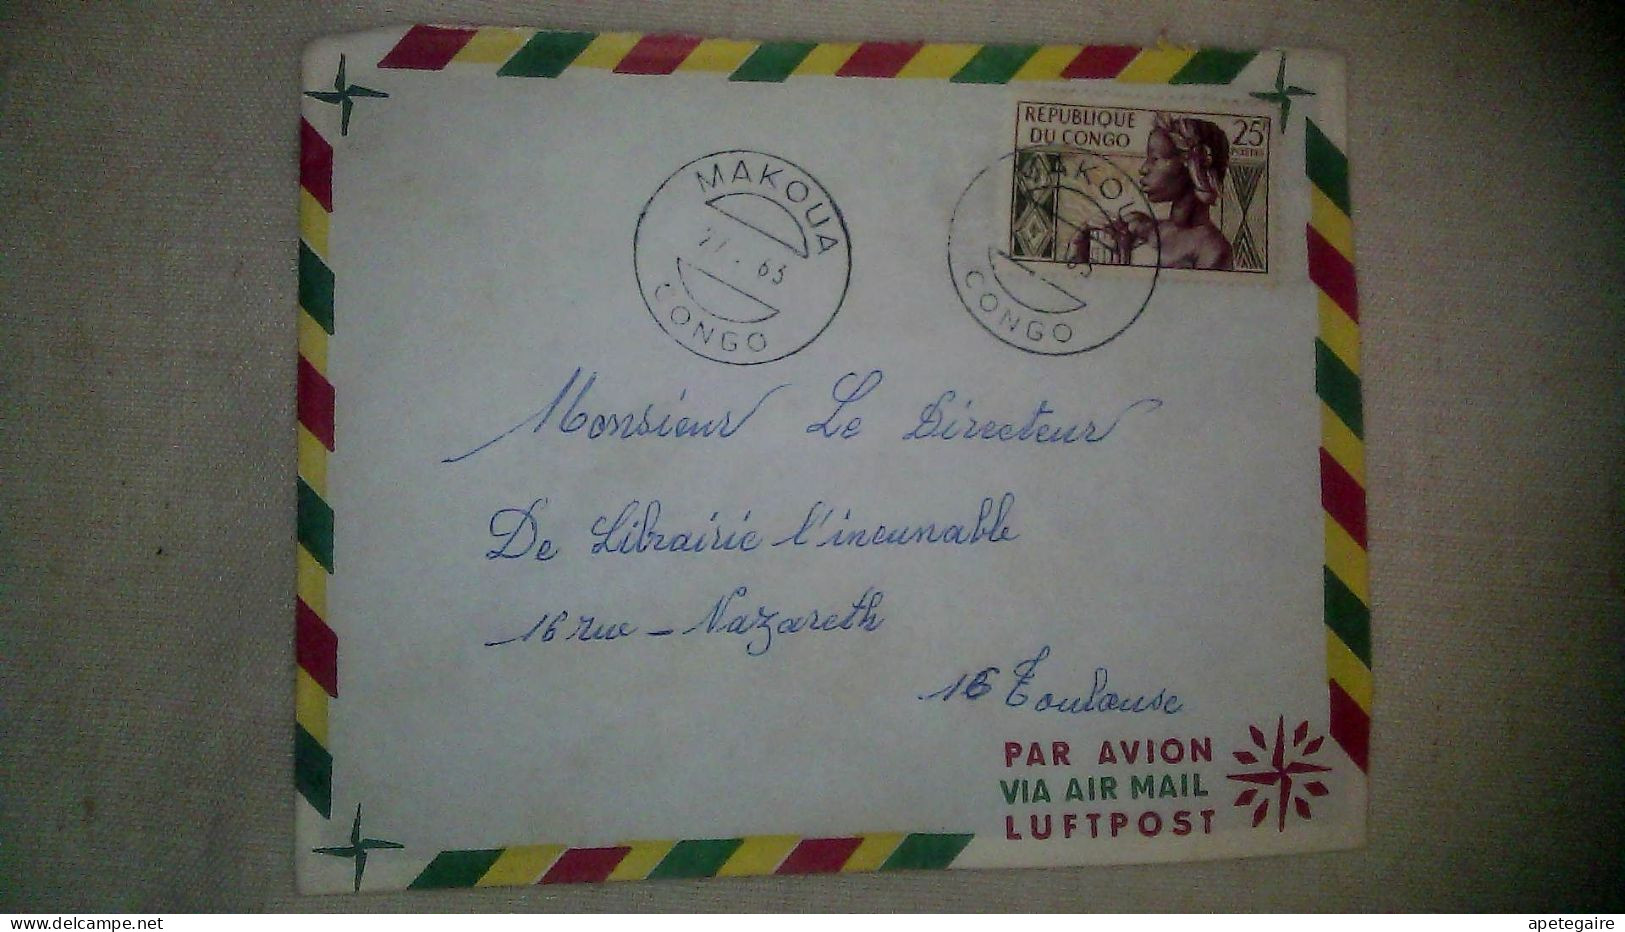 REPUBLIQUE
DU CONGO
25F
POSTES
MAKOUA
65
CONGO
MAKOUA
65
CONGO
Monsieur Le Directeur
De Librairie l'incunable
16 rue - Nazareth
16 Toulouse
PAR AVION
VIA AIR MAIL
LUFTPOST
delcampe.net
apetegaire